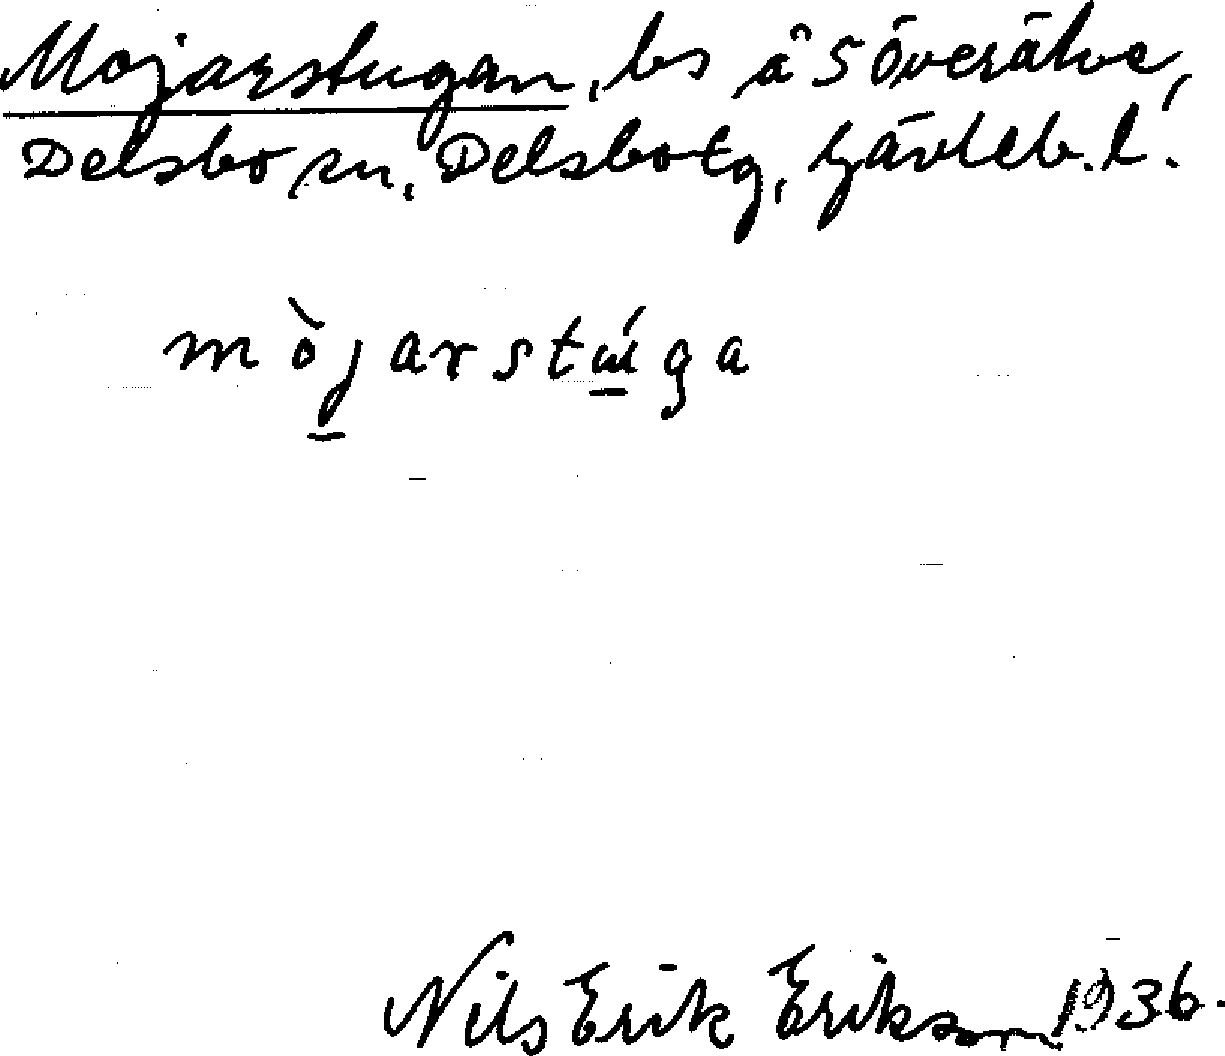 Mojarstugan, bs å S Överälve,
Delsbo sn, Delsbo tg, Gävleb. l.
mòjarstúga
Nils Erik Erikson 1936.